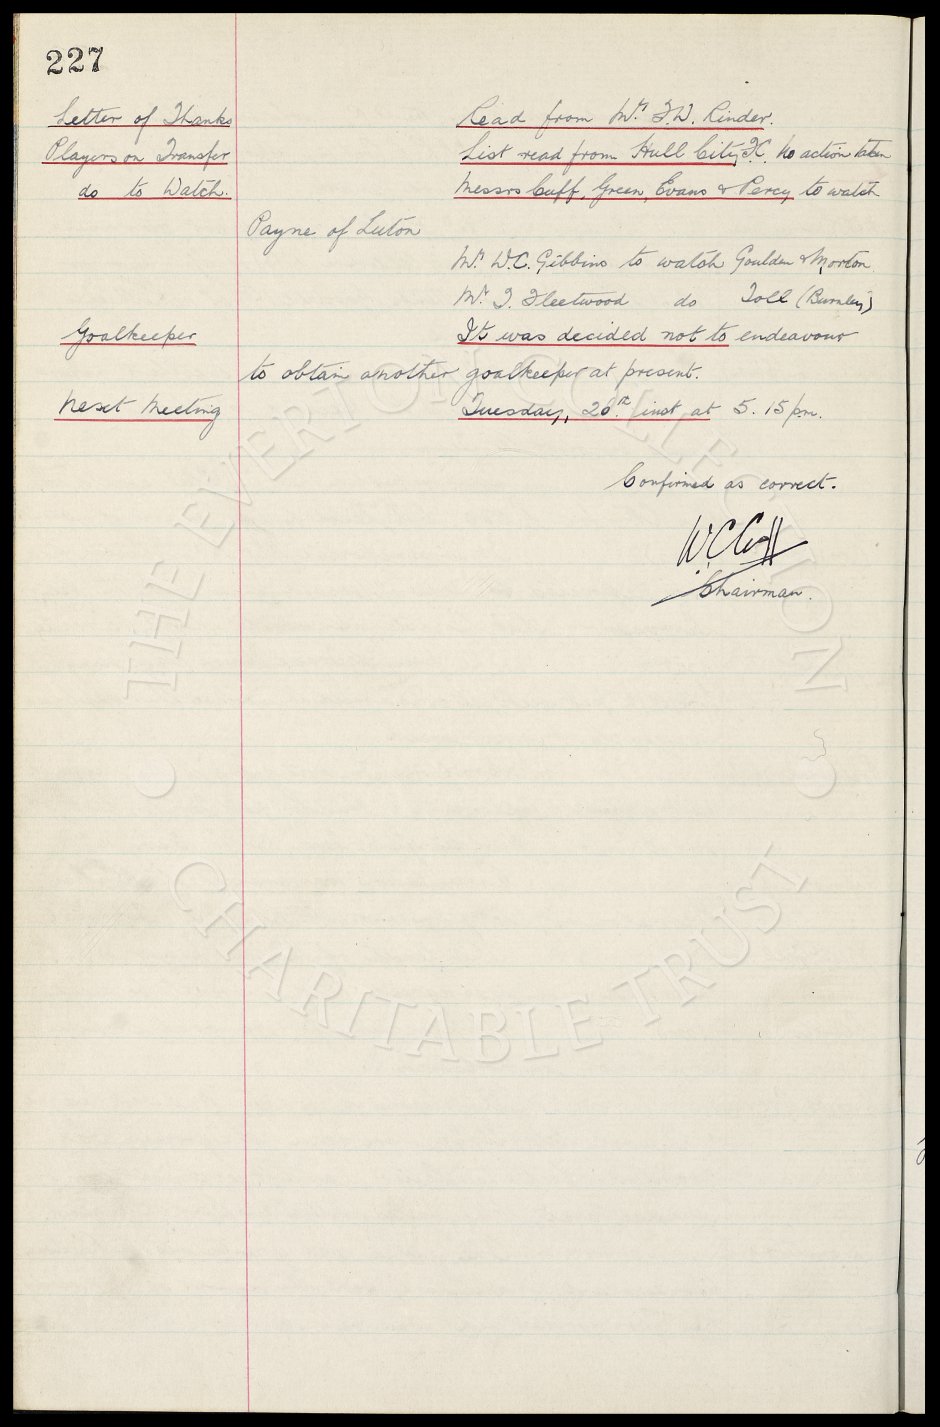 227
Letter of Thanks Read from Mr. F.W. Rinder.
Players on Transfer List read from Hull City F.C. No action taken
do to Watch. Messrs Cuff, Green, Evans & Percy to watch
Payne of Luton
Mr. W.C. Gibbins to watch Goulden & Morton
Mr. T. Fleetwood do Toll (Burnley)
Goalkeeper It was decided not to endeavour
to obtain another goalkeeper at present.
Next Meeting Tuesday, 20th. inst at 5.15 p.m.
Confirmed as correct.
W.C. Cuff
Chairman.
THE EVERTON COLLECTION
CHARITABLE TRUST